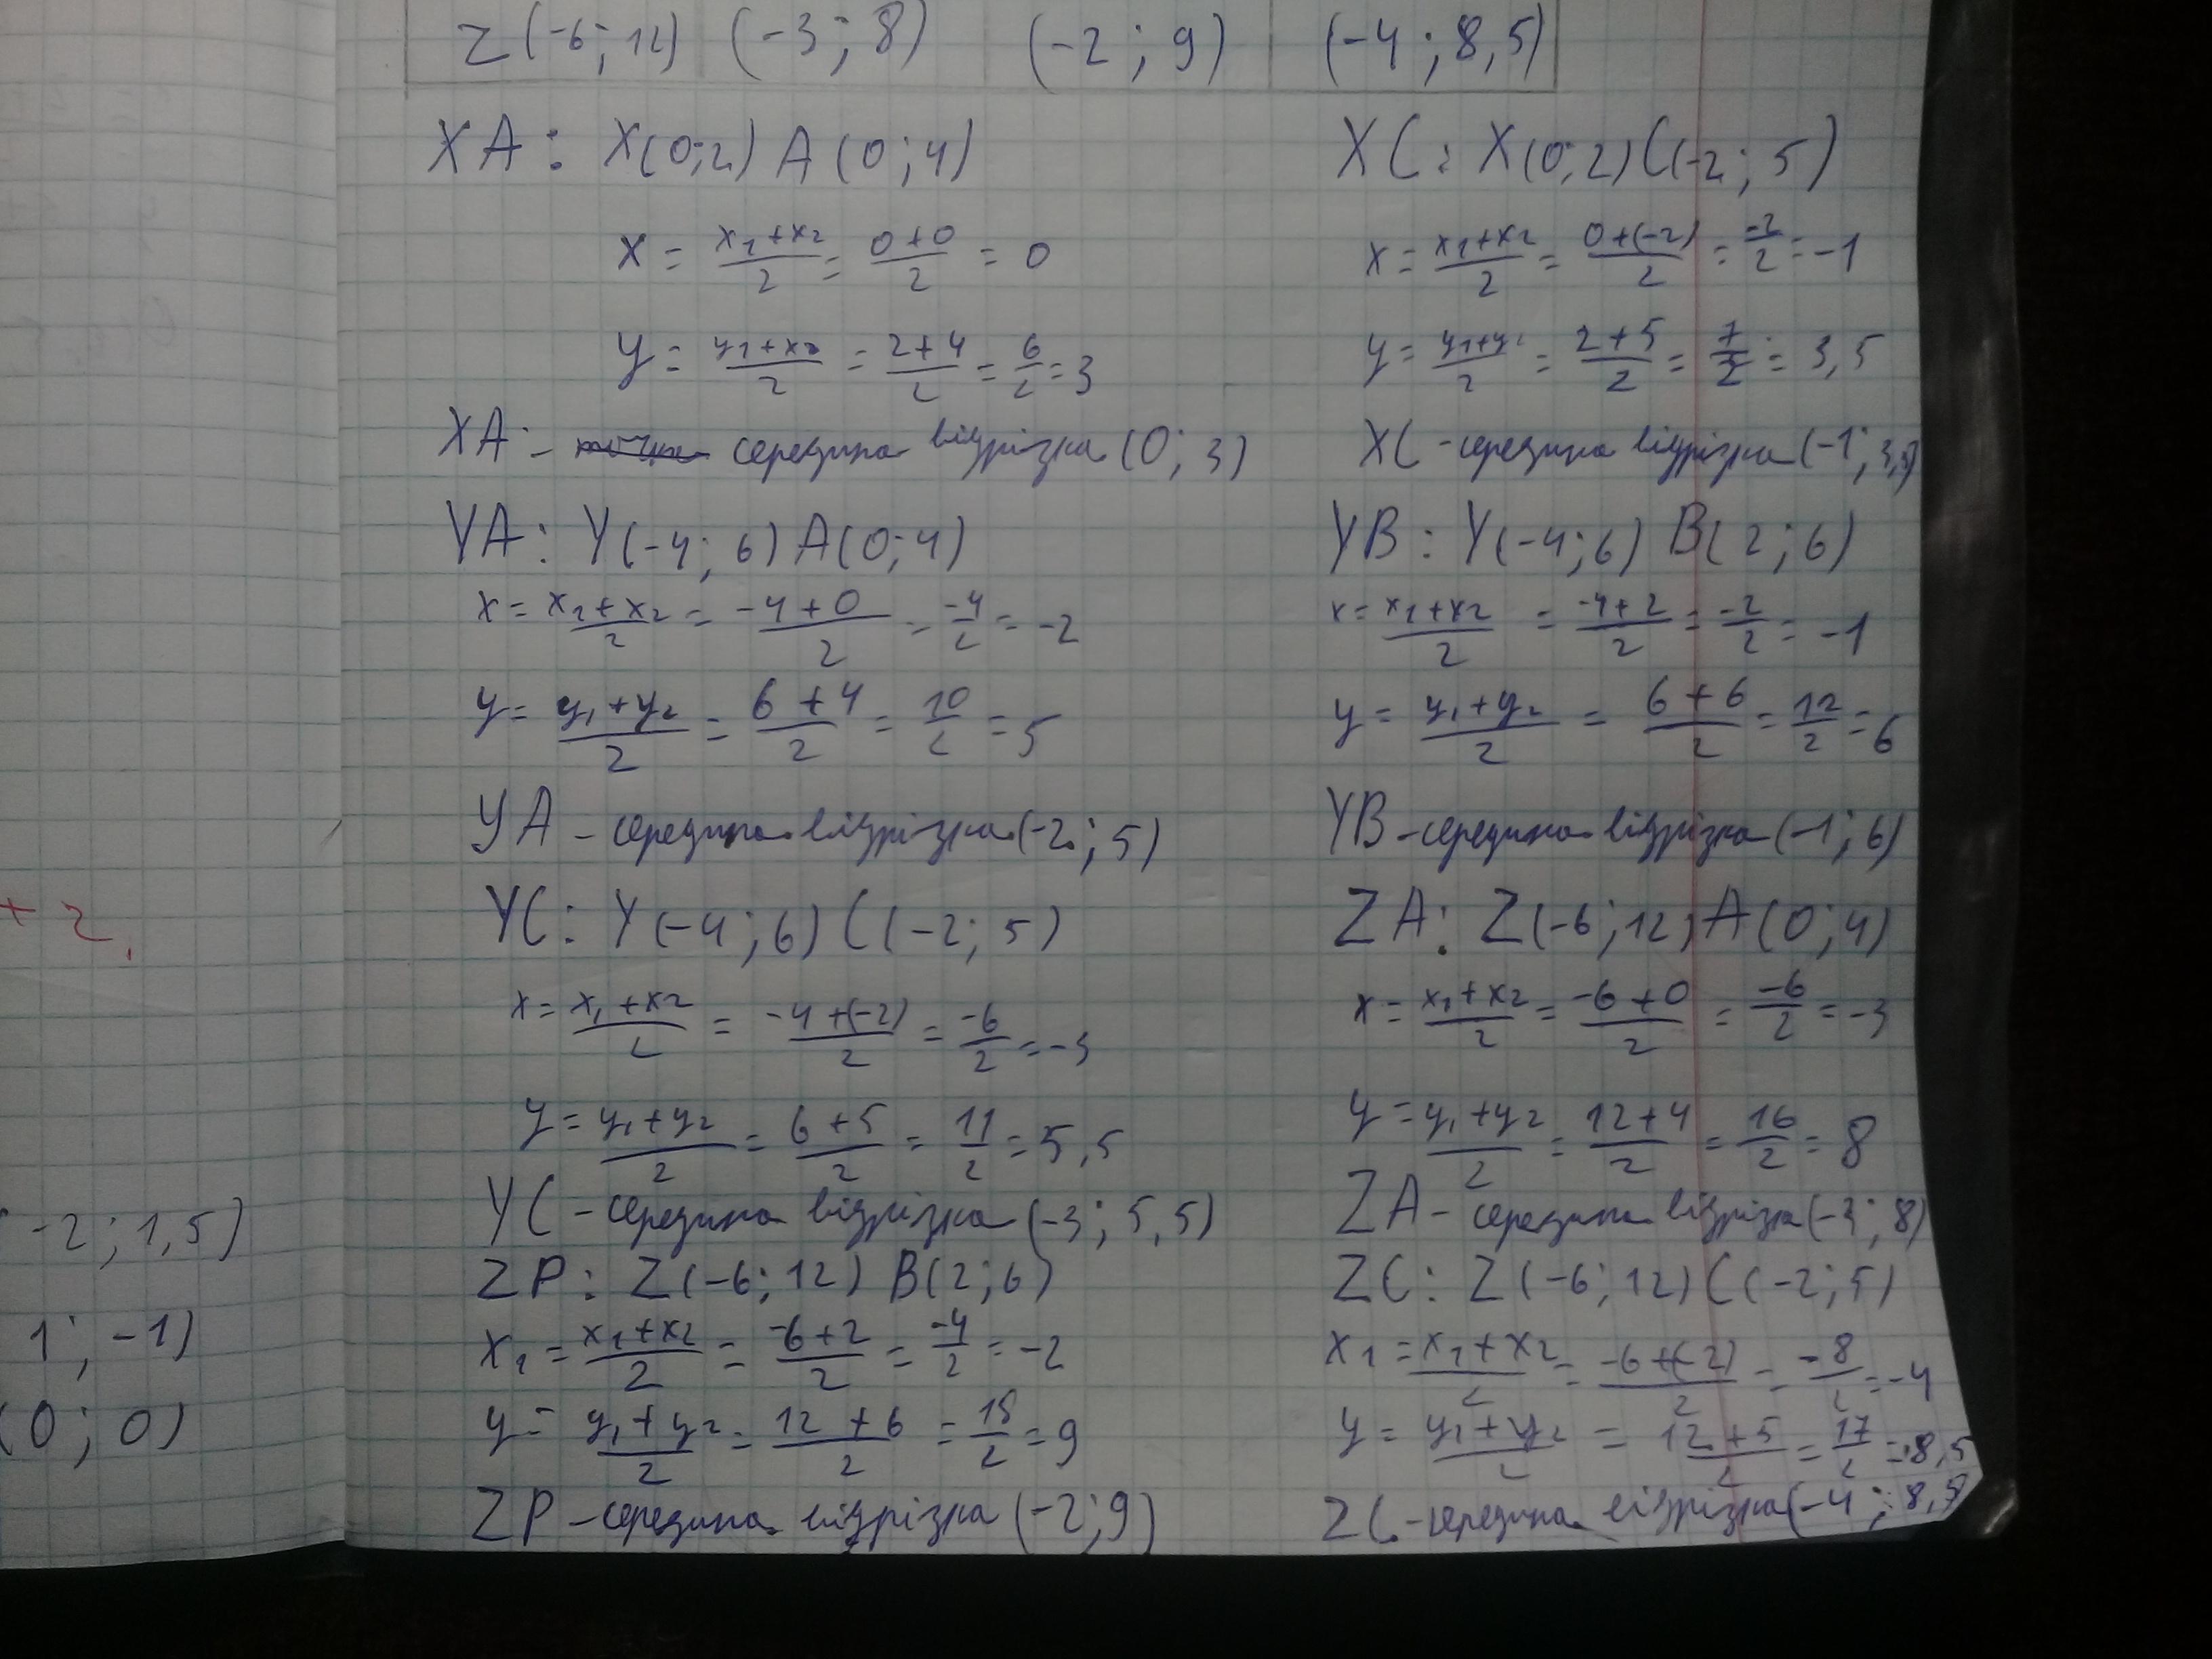 Z(-6; 12) (-3; 8) (-2; 9) (-4; 8,5)
XA: X(0; 2) A(0; 4)
x = x₁+x₂/2 = 0+0/2 = 0
y = y₁+x₂/2 = 2+4/2 = 6/2 = 3
XA - середина відрізка (0; 3)
YA: Y(-4; 6) A(0; 4)
x = x₁+x₂/2 = -4+0/2 = -4/2 = -2
y = y₁+y₂/2 = 6+4/2 = 10/2 = 5
YA - середина відрізка (-2; 5)
YC: Y(-4; 6) C(-2; 5)
x = x₁+x₂/2 = -4+(-2)/2 = -6/2 = -3
y = y₁+y₂/2 = 6+5/2 = 11/2 = 5,5
YC - середина відрізка (-3; 5,5)
ZP: Z(-6; 12) B(2; 6)
x₁ = x₁+x₂/2 = -6+2/2 = -4/2 = -2
y = y₁+y₂/2 = 12+6/2 = 18/2 = 9
ZP - середина відрізка (-2; 9)
XC: X(0; 2) C(-2; 5)
x = x₁+x₂/2 = 0+(-2)/2 = -2/2 = -1
y = y₁+y₂/2 = 2+5/2 = 7/2 = 3,5
XC - середина відрізка (-1; 3,5)
YB: Y(-4; 6) B(2; 6)
x = x₁+x₂/2 = -4+2/2 = -2/2 = -1
y = y₁+y₂/2 = 6+6/2 = 12/2 = 6
YB - середина відрізка (-1; 6)
ZA: Z(-6; 12) A(0; 4)
x = x₁+x₂/2 = -6+0/2 = -6/2 = -3
y = y₁+y₂/2 = 12+4/2 = 16/2 = 8
ZA - середина відрізка (-3; 8)
ZC: Z(-6; 12) C(-2; 5)
x₁ = x₁+x₂/2 = -6+(-2)/2 = -8/2 = -4
y = y₁+y₂/2 = 12+5/2 = 17/2 = 8,5
ZC - середина відрізка (-4; 8,5)
+ 2.
-2; 1,5)
1; -1)
(0; 0)